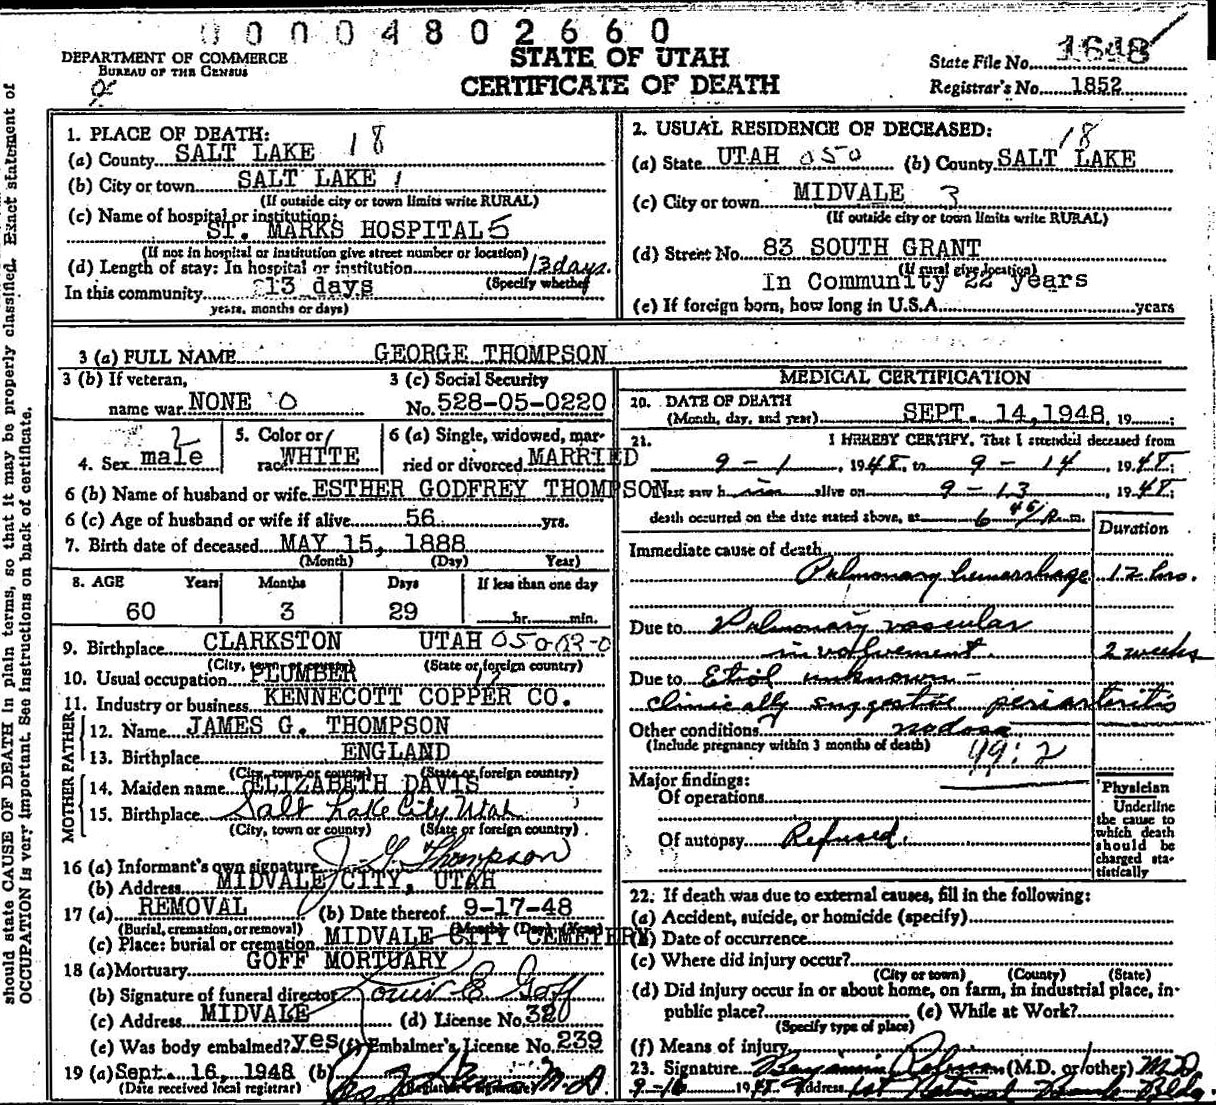 00004802660
DEPARTMENT OF COMMERCE
BUREAU OF THE CENSUS
STATE OF UTAH
CERTIFICATE OF DEATH
State File No. 1648
Registrar's No. 1852
should state CAUSE OF DEATH in plain terms, so that it may be properly classified. Exact statement of
OCCUPATION is very important. See instructions on back of certificate.
1. PLACE OF DEATH: 18
(a) County SALT LAKE
(b) City or town SALT LAKE 1
(If outside city or town limits write RURAL)
(c) Name of hospital or institution:
ST. MARKS HOSPITAL 5
(If not in hospital or institution give street number or location)
(d) Length of stay: In hospital or institution 13 days.
(Specify whether
In this community 13 days
years, months or days)
2. USUAL RESIDENCE OF DECEASED: 18
(a) State UTAH 050 (b) County SALT LAKE
(c) City or town MIDVALE 3
(If outside city or town limits write RURAL)
(d) Street No. 83 SOUTH GRANT
(If rural give location)
In Community 22 years
(e) If foreign born, how long in U.S.A. years
3 (a) FULL NAME GEORGE THOMPSON
3 (b) If veteran,
name war NONE 0
3 (c) Social Security
No. 528-05-0220
4. Sex male 2
5. Color or
race WHITE
6 (a) Single, widowed, mar-
ried or divorced MARRIED
6 (b) Name of husband or wife ESTHER GODFREY THOMPSON
6 (c) Age of husband or wife if alive 56 yrs.
7. Birth date of deceased MAY 15, 1888
(Month) (Day) Year)
8. AGE Years Months Days If less than one day
60 3 29 hr. min.
9. Birthplace CLARKSTON UTAH 050-03-0
(City, town or county) (State or foreign country)
10. Usual occupation PLUMBER 12
11. Industry or business KENNECOTT COPPER CO.
MOTHER FATHER
12. Name JAMES G. THOMPSON
13. Birthplace ENGLAND
(City, town or county) (State or foreign country)
14. Maiden name ELIZABETH DAVIS
15. Birthplace Salt Lake City Utah
(City, town or county) (State or foreign country)
16 (a) Informant's own signature J G Thompson
(b) Address MIDVALE CITY, UTAH
17 (a) REMOVAL (b) Date thereof 9-17-48
(Burial, cremation, or removal) (Month) (Day) (Year)
(c) Place: burial or cremation MIDVALE CITY CEMETERY
18 (a) Mortuary GOFF MORTUARY
(b) Signature of funeral director Louis E Goff
(c) Address MIDVALE (d) License No. 320
(e) Was body embalmed? yes (f) Embalmer's License No. 239
19 (a) Sept. 16, 1948 (b) M.D.
(Date received local registrar) (Registrar's signature)
MEDICAL CERTIFICATION
20. DATE OF DEATH
(Month, day, and year) SEPT. 14, 1948, 19
21. I HEREBY CERTIFY, That I attended deceased from
9-1, 1948, to 9-14, 1948;
last saw him alive on 9-13, 1948;
death occurred on the date stated above, at 6 45/A.m.
Duration
Immediate cause of death
Pulmonary hemorrhage 12 hrs.
Due to Pulmonary vascular
involvement 2 weeks
Due to Etiol unknown -
clinically suggestive periarteritis
Other conditions nodosa
(Include pregnancy within 3 months of death) 49:2
Major findings:
Of operations
Of autopsy Refused.
Physician
Underline
the cause to
which death
should be
charged sta-
tistically
22. If death was due to external causes, fill in the following:
(a) Accident, suicide, or homicide (specify)
(b) Date of occurrence
(c) Where did injury occur?
(City or town) (County) (State)
(d) Did injury occur in or about home, on farm, in industrial place, in
public place? (e) While at Work?
(Specify type of place)
(f) Means of injury
23. Signature Benjamin (M.D. or other) M.D
9-16 1948 Address 1st National Bank Bldg